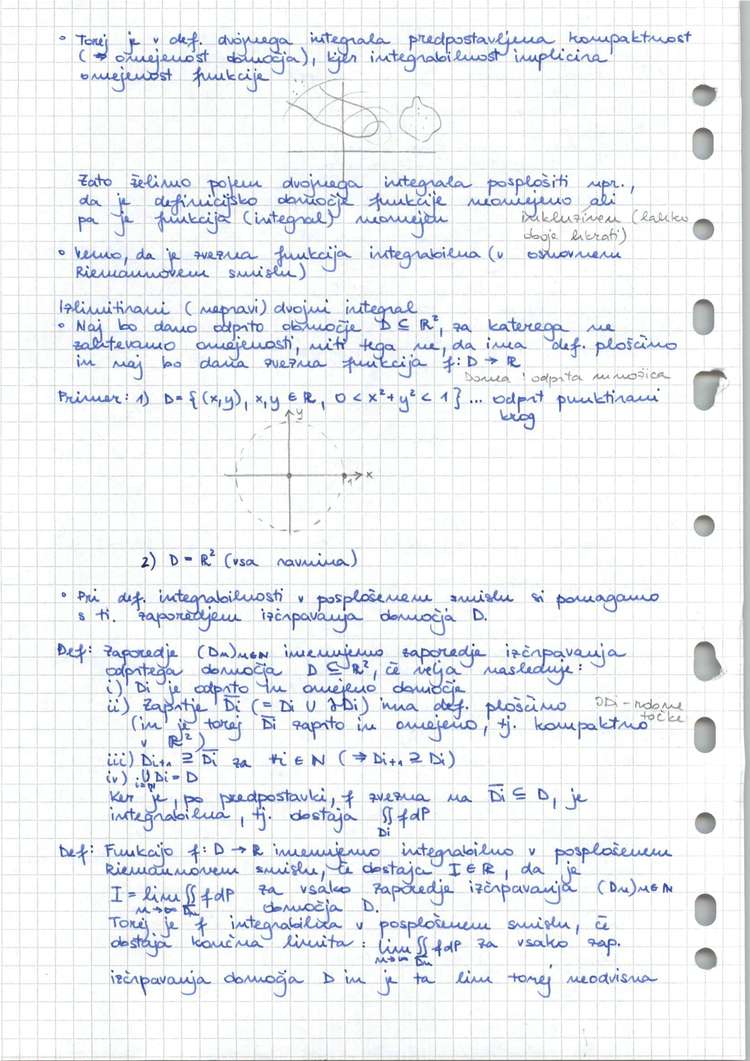 • Torej je v def. dvojnega integrala predpostavljena kompaktnost
(→ omejenost območja), kjer integrabilnost implicira
omejenost funkcije
Zato želimo pojem dvojnega integrala posplošiti npr.,
da je definicijsko območje funkcije neomejeno ali
pa je funkcija (integral) neomejen inkluziven (lahko
dogje hkrati)
• Vemo, da je zvezna funkcija integrabilna (v osnovnem
Riemannovem smislu)
Izlimitirani (nepravi) dvojni integral
• Naj bo dano odprto območje D ⊆ ℝ², za katerega ne
zahtevamo omejenosti, niti tega ne, da ima def. ploščino
in naj bo dana zvezna funkcija f: D → ℝ
Domea ! odprta množica
Primer: 1) D = {(x,y), x,y ∈ ℝ, 0 < x² + y² < 1} ... odprt punktirani
krog
y
1 x
2) D = ℝ² (vsa ravnina)
• Pri def. integrabilnosti v posplošenem smislu si pomagamo
s ti. zaporedjem izčrpavanja domočja D.
Def: Zaporedje (Dn)n∈N imenujemo zaporedje izčrpavanja
odprtega domočja D ⊆ ℝ², če velja naslednje:
i) Di je odprto in omejeno domočje
ii) Zaprtje D̅i (= Di ∪ ∂Di) ima def. ploščino ∂Di - robne
točke
(in je torej D̅i zaprto in omejeno, tj. kompaktno
v ℝ²)
iii) Di+1 ⊇ D̅i za ∀i ∈ N (⇒ Di+1 ⊇ Di)
iv) ∪i∈N Di = D
Ker je, po predpostavki, f zvezna na D̅i ⊆ D, je
integrabilna, tj. obstaja ∬Di f dP
Def: Funkcijo f: D → ℝ imenujemo integrabilno v posplošenem
Riemannovem smislu, če obstaja I ∈ ℝ, da je
I = lim n→∞ ∬Dn f dP za vsako zaporedje izčrpavanja (Dn)n∈N
domočja D.
Torej je f integrabilna v posplošenem smislu, če
obstaja končna limita: lim n→∞ ∬Dn f dP za vsako zap.
izčrpavanja domočja D in je ta lim torej neodvisna